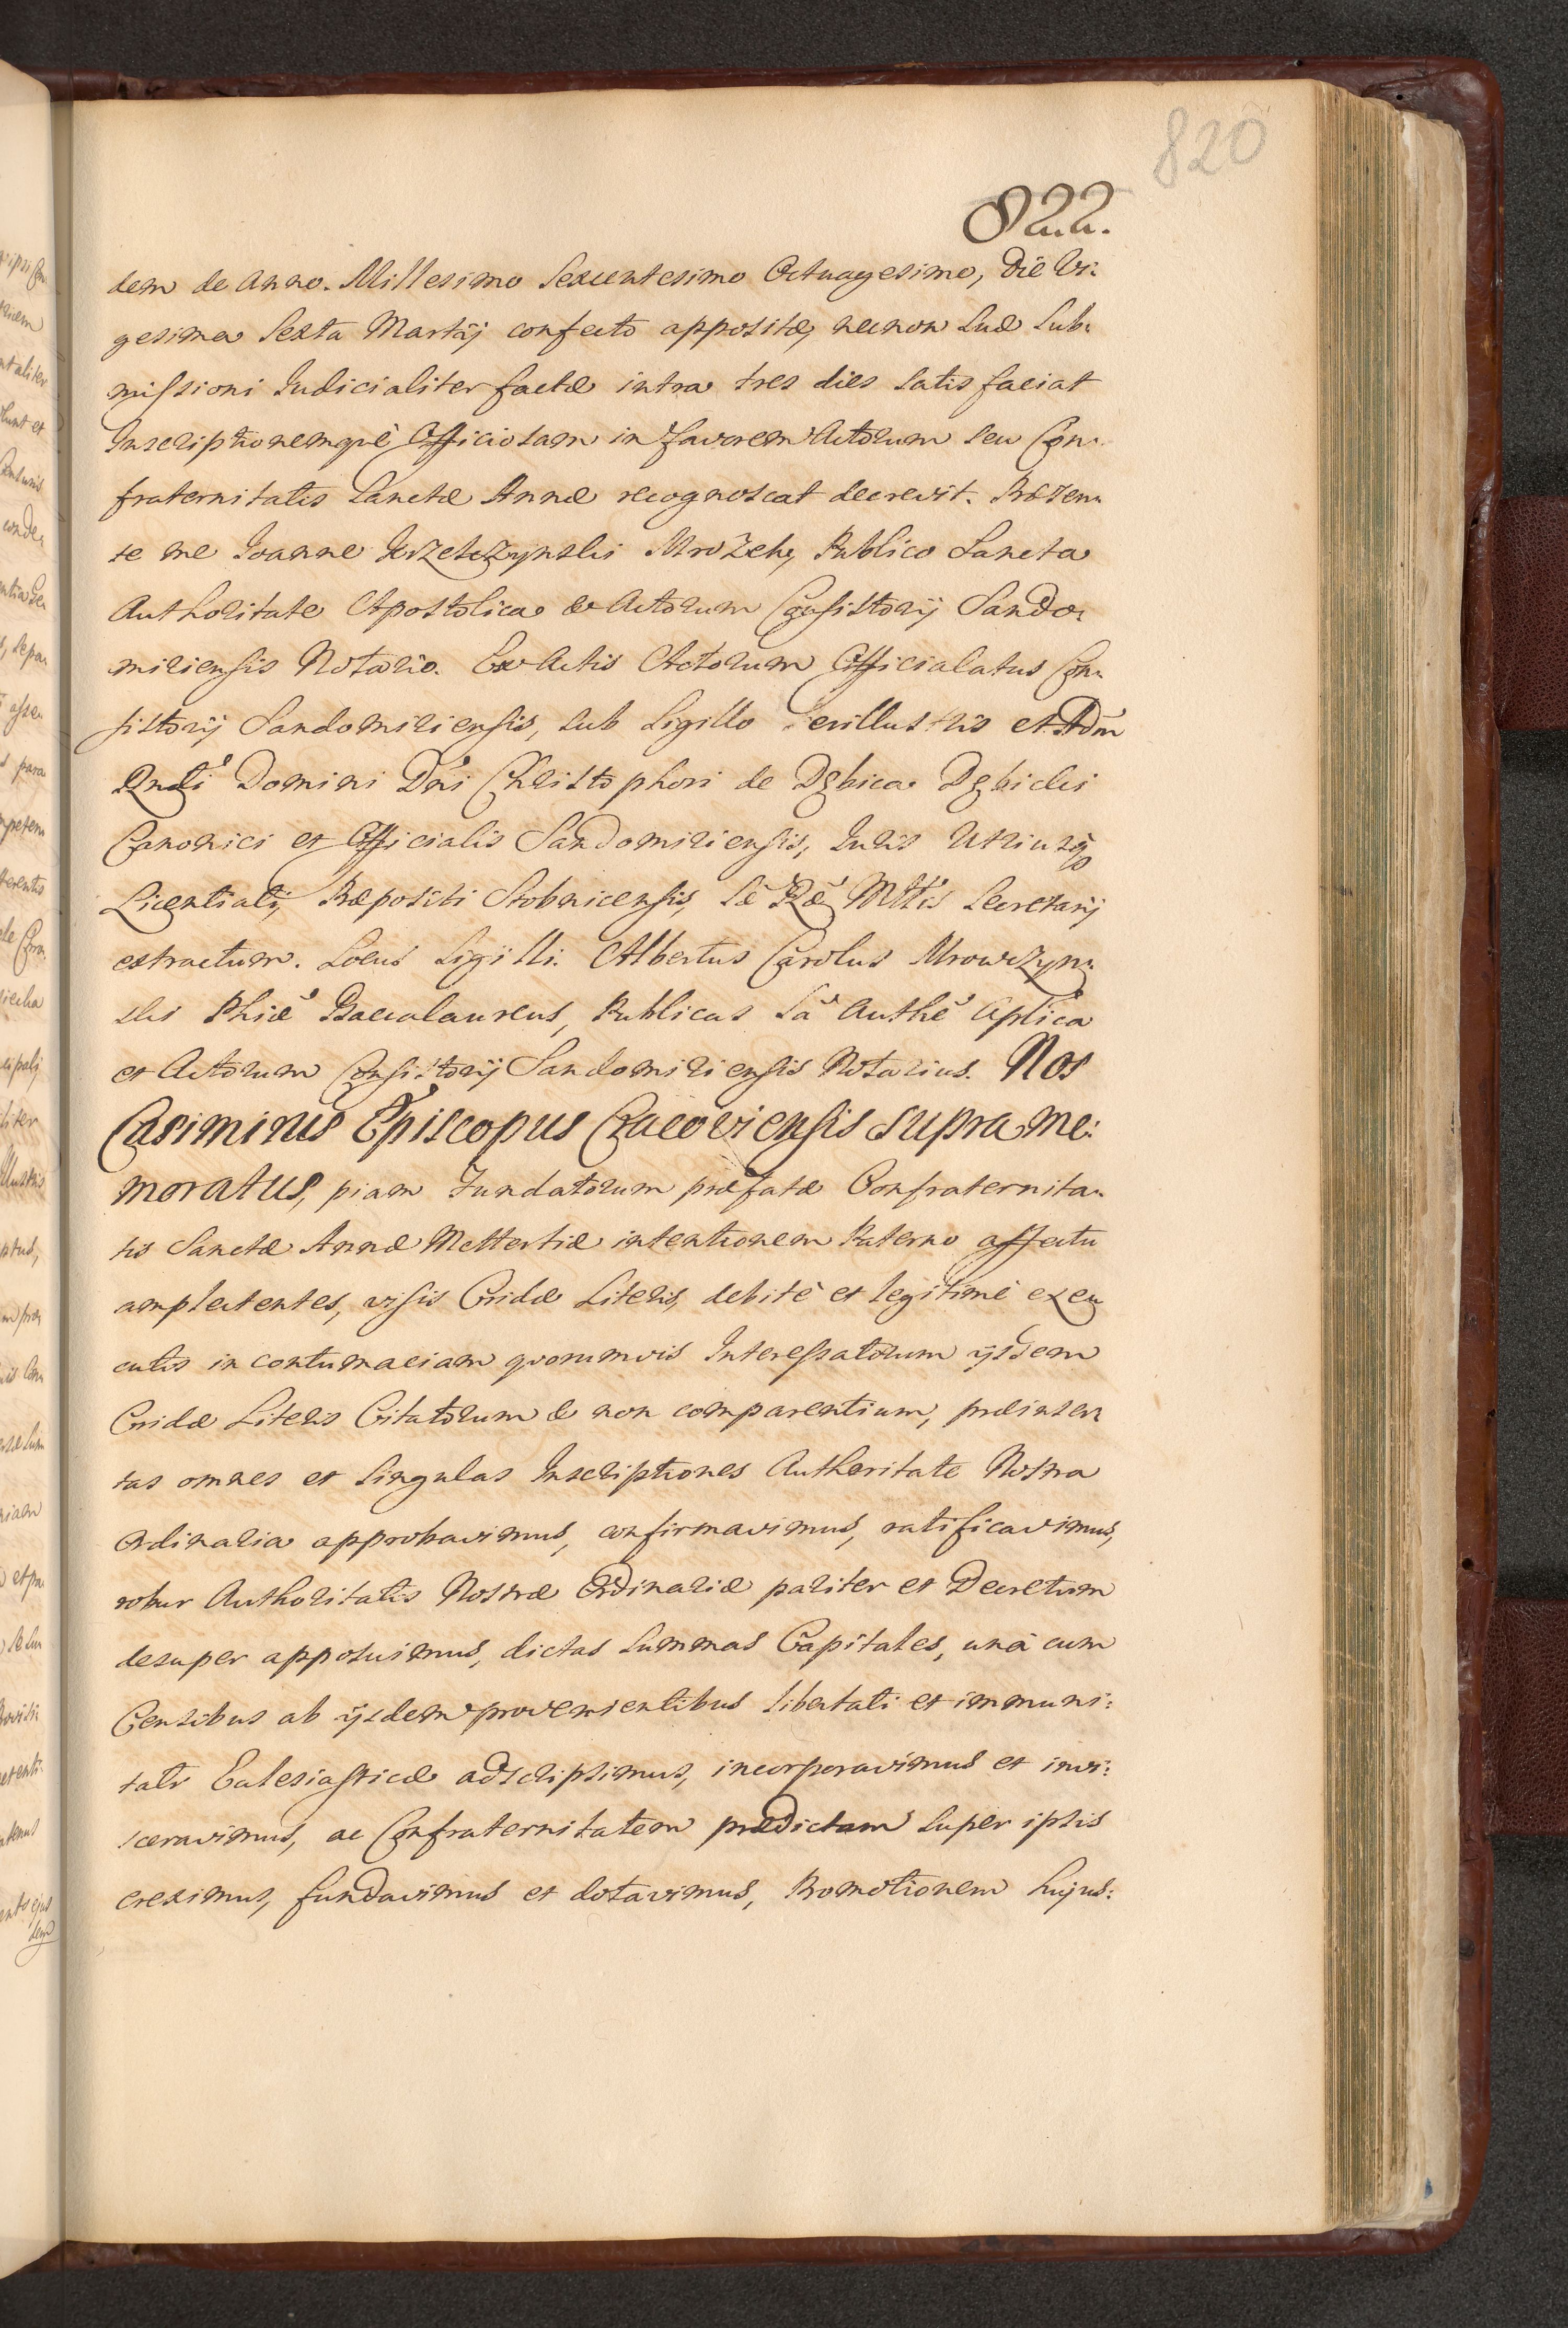 820
822.
dem de Anno. Millesimo Sexcentesimo Octuagesimo, Die Vi:
gesima Sexta Martij confecto appositæ, necnon Suæ Sub:
missioni Iudicialiter factæ intra tres dies satisfaciat
Inscriptionemquè Officiosam in favorem Actorum seu Con:
fraternitatis Sanctæ Annæ recognoscat decrevit. Præsen:
te me Joanne Mrozek, Publico Sancta
Authoritate Apostolica & Actorum Consistorij Sando:
miriensis Notario. Ex Actis Actorum Officialatus Con:
sistorij Sandomiriensis, sub Sigillo Perillustris et Adm̄
Rndi Domini Dni Christophori de Dębica Dębicki
Canonici et Officialis Sandomiriensis, Iuris Utriusq̃
Licentiati, Præpositi Stobnicensis, Sæ Ræ Mttis Secretarij
extractum. Locus Sigilli. Albertus Carolus Mrowczyn:
ski Phiæ Baccalaureus, Publicus Sa Authe Aplica
et Actorum Consistorij Sandomiriensis Notarius. Nos
Casimirus Episcopus Cracoviensis supra me:
moratus, piam Fundatorum præfatæ Confraternita:
tis Sanctæ Annæ Mettertiæ intentionem Paterno affectu
amplectentes, visis Cridæ Literis, debitè et legitimè exe:
cutis in contumaciam quorumvis Interessatorum ijsdem
Cridæ Literis Citatorum & non comparentium, præinser:
tas omnes et singulas Inscriptiones Autheritate Nostra
Ordinaria approbavimus, confirmavimus, ratificavimus,
robur Authoritatis Nostræ Ordinariæ pariter et Decretum
desuper apposuimus, dictas Summas Capitales, unà cum
Censibus ab ijsdem provenientibus libertati et immuni:
tati Eclesiasticæ adscripsimus, incorporavimus et invi:
sceravimus, ac Confraternitatem prædictam super ipsis
ereximus, fundavimus et dotavimus, Promotionem hujus: